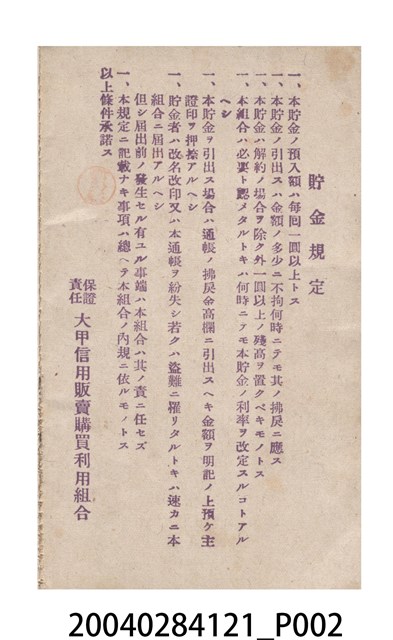 貯金規定
一、本貯金ノ預入額ハ每回一圓以上トス
一、本貯金ノ引出スハ金額ノ多少ニ不拘何時ニテモ其ノ拂戾ニ應ス
一、本貯金ハ解約ノ場合ヲ除ク外一圓以上ノ殘高ヲ置クベキモノトス
一、本組合ハ必要ト認メタルトキハ何時ニテモ本貯金ノ利率ヲ改定スルコトアル
ヘシ
一、本貯金ヲ引出ス場合ハ通帳ノ拂戾金高欄ニ引出スヘキ金額ヲ明記ノ上預ケ主
證印ヲ押捺アルヘシ
一、貯金者ハ改名改印又ハ本通帳ヲ紛失シ若クハ盜難ニ罹リタルトキハ速カニ本
組合ニ屆出アルヘシ
但シ屆出前ノ發生セル有ユル事端ハ本組合ハ其ノ責ニ任セズ
一、本規定ニ記載ナキ事項ハ總ヘテ本組合ノ內規ニ依ルモノトス
以上條件承諾ス
保證責任 大甲信用販賣購買利用組合
20040284121_P002